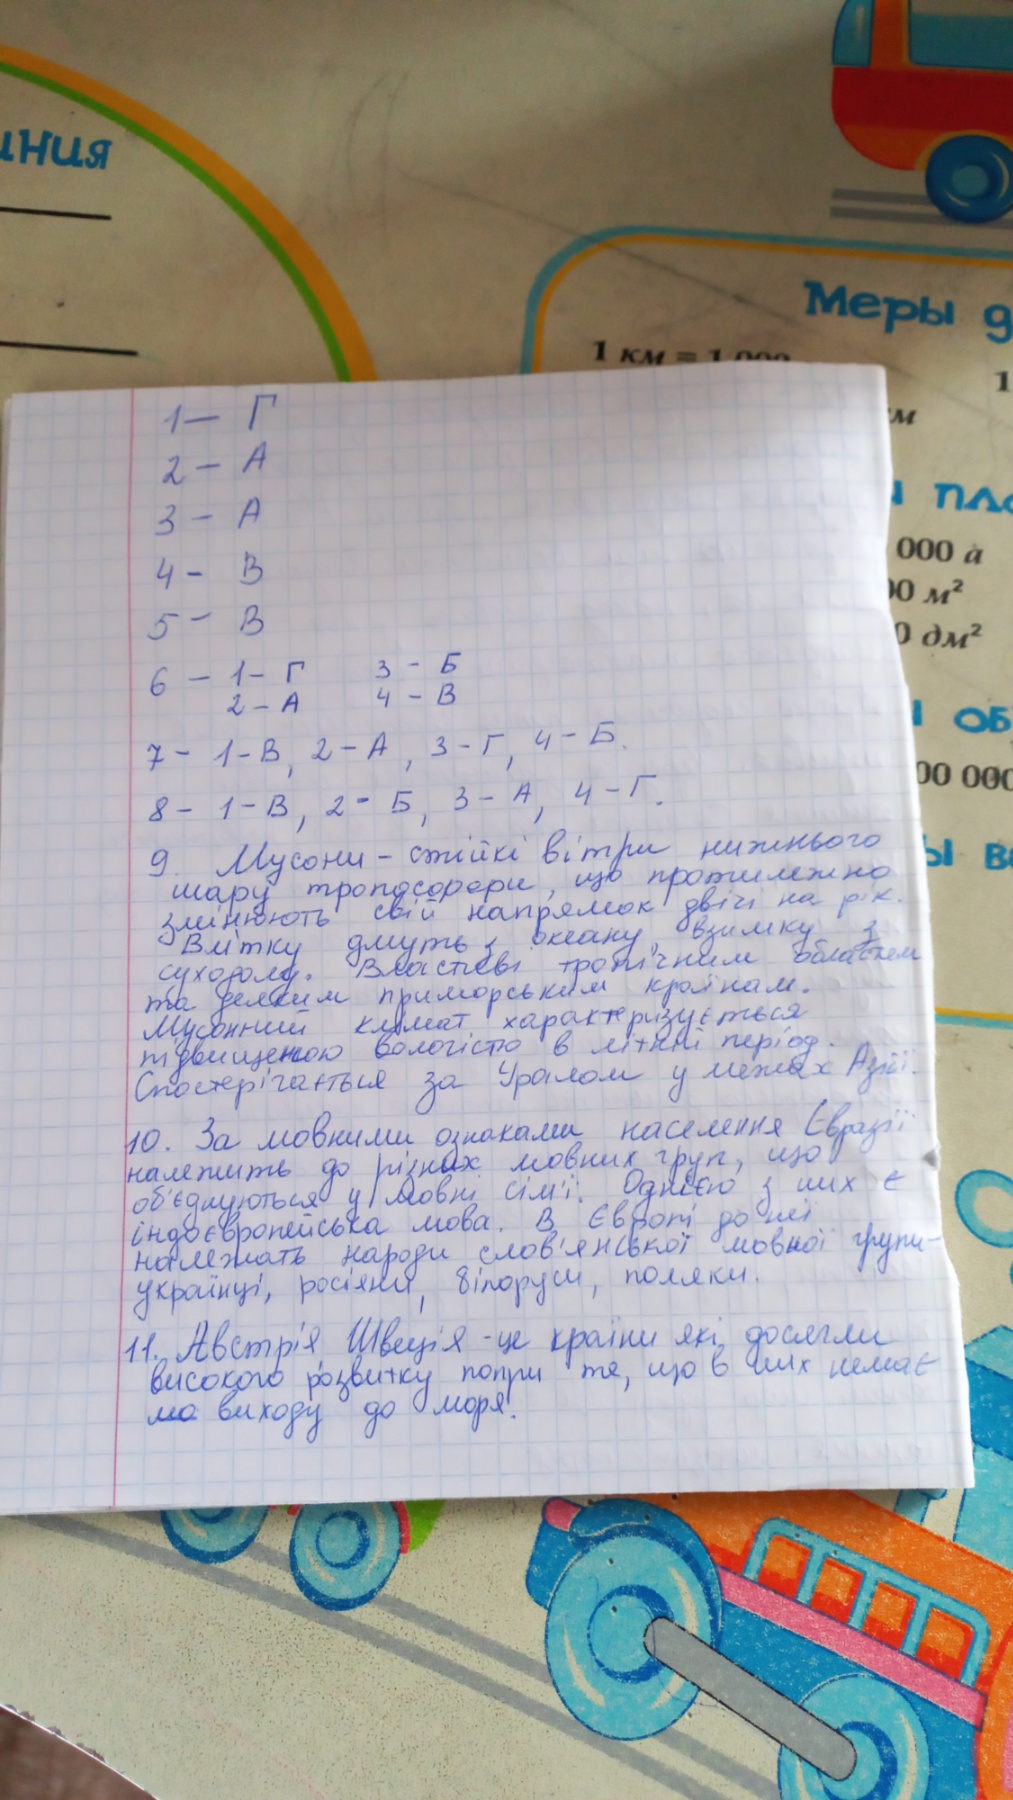 иния
Меры д
1 км = 1 000
1
км
и пло
000 а
00 м²
0 дм²
ы об
00 000
ы ве
1 — Г
2 – А
3 – А
4 – В
5 – В
6 – 1 – Г 3 – Б
2 – А 4 – В
7 – 1 – В, 2 – А, 3 – Г, 4 – Б.
8 – 1 – В, 2 – Б, 3 – А, 4 – Г.
9. Мусони – стійкі вітри нижнього
шару тропосфери, що протилежно
змінюють свій напрямок двічі на рік.
Влітку дмуть з океану, взимку з
суходолу. Властиві тропічним областям
та деяким приморським країнам.
Мусонний клімат характеризується
підвищеною вологістю в літній період.
Спостерігається за Уралом у межах Азії.
10. За мовними ознаками населення Євразії
належить до різних мовних груп, що
об'єднуються у мовні сім'ї. Однією з них є
індоєвропейська мова. В Європі до неї
належать народи слов'янської мовної групи –
українці, росіяни, білоруси, поляки.
11. Австрія Швеція - це країни які досягли
високого розвитку попри те, що в них немає
ма виходу до моря.